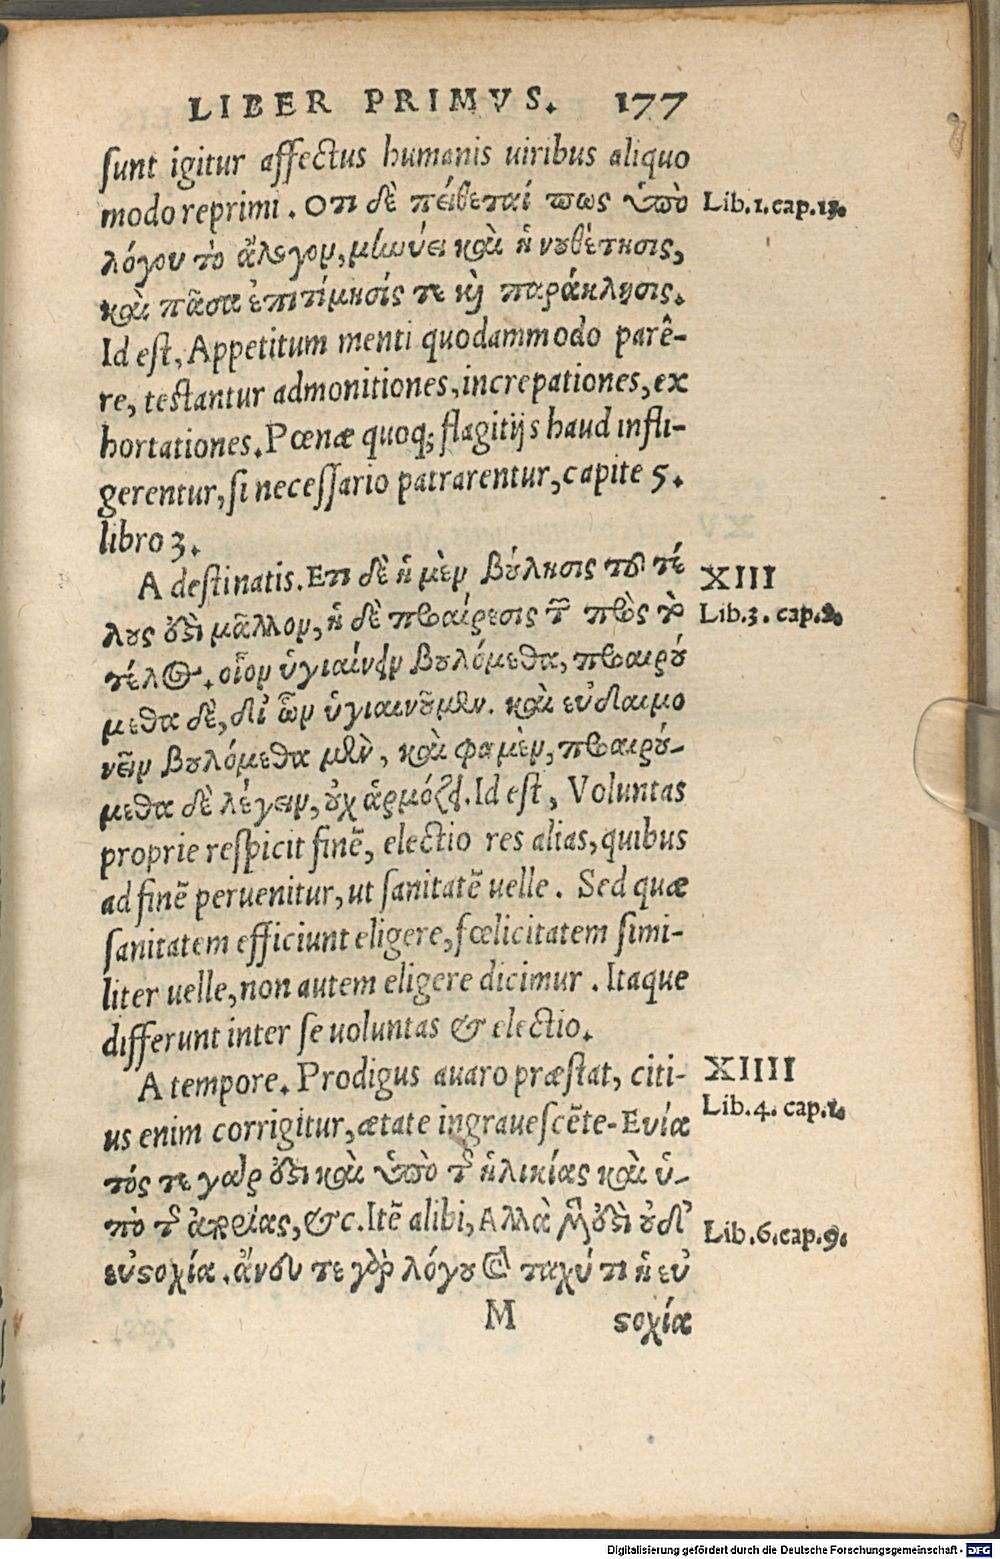 LIBER PRIMVS. 177
sunt igitur affectus humanis uiribus aliquo
modo reprimi. Οτι δὲ πείθεταί πως ὑπὸ
Lib.1.cap.13.
λόγου τὸ ἄλογον, μηνύει καὶ ἡ νουθέτησις,
καὶ πᾶσα ἐπιτίμησίς τε καὶ παράκλησις.
Id est, Appetitum menti quodammodo parê-
re, testantur admonitiones, increpationes, ex
hortationes. Pœnæ quoq; flagitijs haud infli-
gerentur, si necessario patrarentur, capite 5.
libro 3.
A destinatis. Ετι δὲ ἡ μὲν βούλησις τοῦ τέ
XIII
λους ἐστὶ μᾶλλον, ἡ δὲ προαίρεσις τῶν πρὸς τὸ
Lib.3. cap.2.
τέλος. οἷον ὑγιαίνειν βουλόμεθα, προαιρού
μεθα δὲ, δι' ὧν ὑγιαινοῦμεν. καὶ εὐδαιμο
νεῖν βουλόμεθα μὲν, καὶ φαμὲν, προαιρού-
μεθα δὲ λέγειν, οὐχ ἁρμόζει. Id est, Voluntas
proprie respicit finẽ, electio res alias, quibus
ad finẽ peruenitur, ut sanitatẽ uelle. Sed quæ
sanitatem efficiunt eligere, fœlicitatem simi-
liter uelle, non autem eligere dicimur. Itaque
differunt inter se uoluntas & electio.
A tempore. Prodigus auaro præstat, citi-
XIIII
us enim corrigitur, ætate ingrauescẽte. Ευία
Lib.4. cap.1.
τός τε γάρ ἐστι καὶ ὑπὸ τῆς ἡλικίας καὶ ὑ-
πὸ τῆς ἀπορίας, &c. Itẽ alibi, Αλλὰ μὴν ἐστὶ οὐδ'
Lib.6.cap.9.
εὐστοχία. ἄνευ τε γὰρ λόγου καὶ ταχύ τι ἡ εὐ
M
στοχία
Digitalisierung gefördert durch die Deutsche Forschungsgemeinschaft - DFG